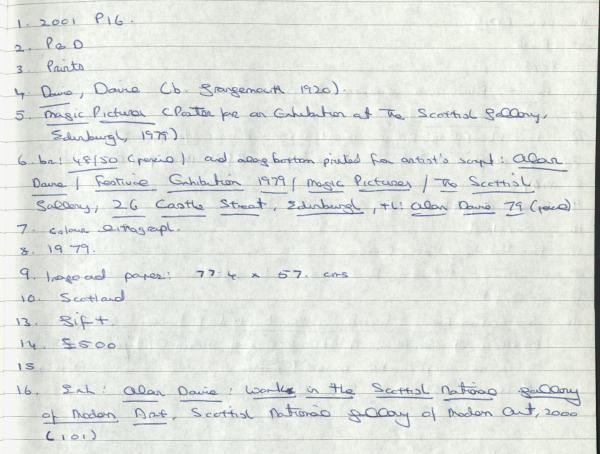 1. 2001 P16.
2. P&D
3. Prints
4. Davie, Davie (b. Grangemouth 1920).
5. Magic Pictures (Poster for an Exhibition at The Scottish Gallery,
Edinburgh, 1979)
6. br: 48/50 (pencil) and along bottom printed from artist's script: Alan
Davie / Festival Exhibition 1979 / Magic Pictures / The Scottish
Gallery, 26 Castle Street, Edinburgh, + l: Alan Davie 79 (pencil)
7. Colour Lithograph.
8. 1979.
9. Image and paper: 77.4 x 57. cms
10. Scotland
13. Gift.
14. £500
15
16. Exh: Alan Davie: Works in the Scottish National Gallery
of Modern Art, Scottish National Gallery of Modern Art, 2000
(101)